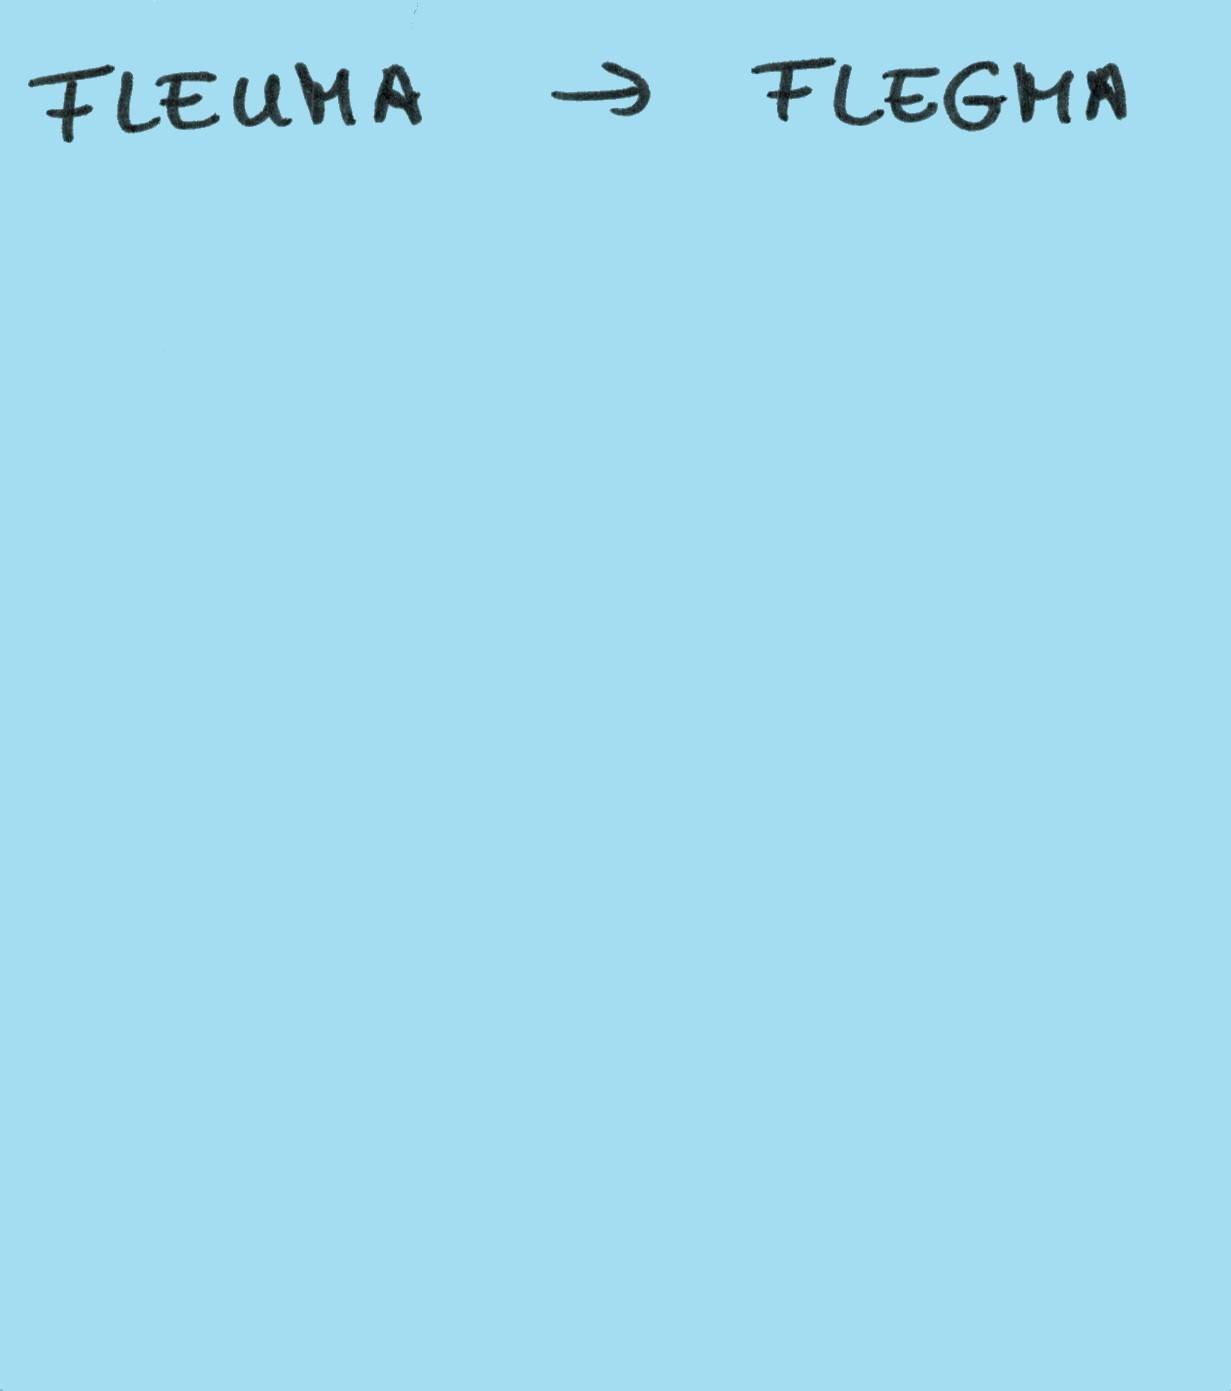 FLEUMA → FLEGMA